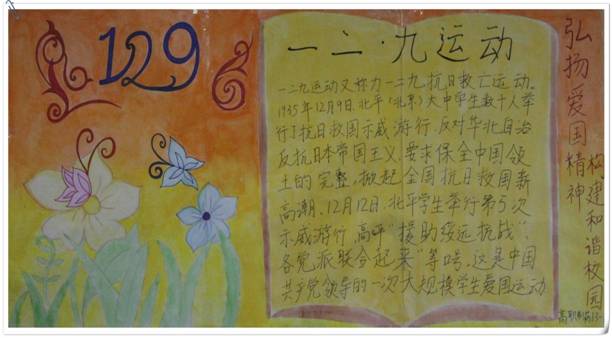 129
一二·九运动
一二九运动又称为一二九抗日救亡运动。
1935年12月9日,北平(北京)大中学生数千人举
行了抗日救国示威游行,反对华北自治
反抗日本帝国主义,要求保全中国领
土的完整,掀起全国抗日救国新
高潮,12月12日,北平学生举行第5次
示威游行,高呼"援助绥远抗战",
各党派联合起来"等口号,这是中国
共产党领导的一次大规模学生爱国运动
弘扬爱国精神
构建和谐校园